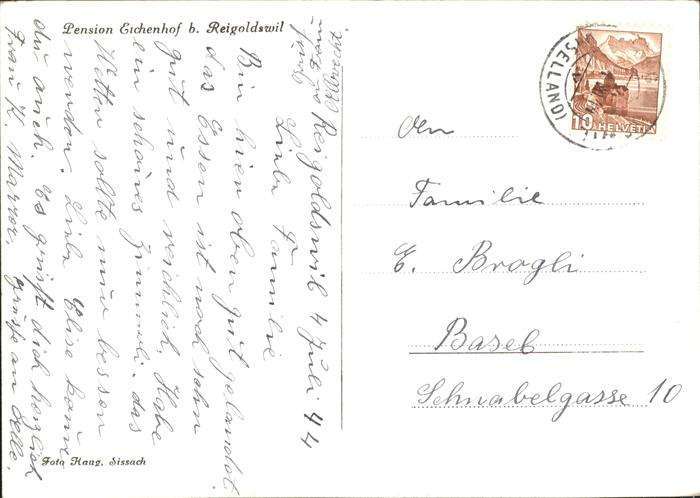 Pension Eichenhof b. Reigoldswil
Reigoldswil 4 Juli 44
Liebe Familie
Bin hier oben gut gelandet
das Essen ist noch sehr
gut und reichlich. Habe
ein schönes Zimmerli. das
Wetter sollte nur besser
werden. Liebe Elise kann
du auch. Es grüsst dich herzlich
Frau K. Grüsse an Alle.
Foto Haug, Sissach
(ON LAND
10 HELVETIA
den
Familie
E. Brogli
Basel
Schnabelgasse 10